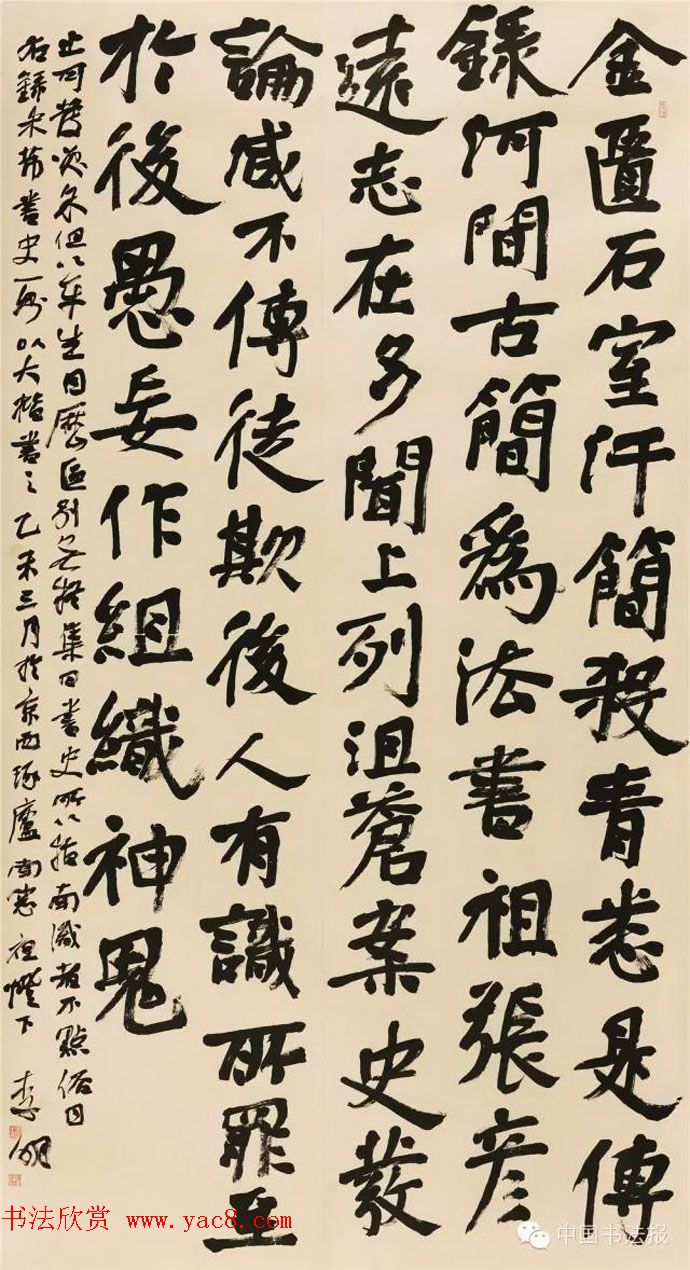 金匱石室汗簡殺青悉是傳
錄河間古簡爲法書祖張彥
遠志在多聞上列沮蒼案史發
論咸不傳徒欺後人有識所罪至
於後愚妄作組織神鬼
止可發笑余但以平生目歷區別無疑集曰書史所以指南識者不點俗目
右錄米芾書史一則以大楷書之乙未三月於京西琢廬南窗下李明
书法欣赏 www.yac8.com
中国书法报